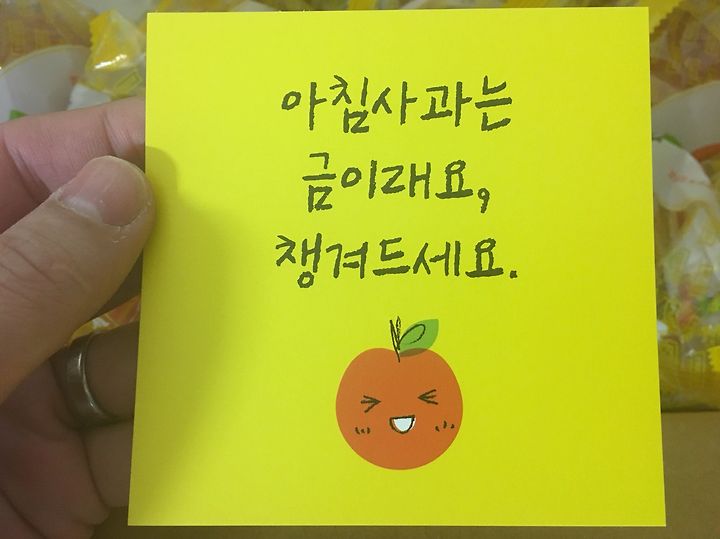 아침사과는
금이래요,
챙겨드세요.